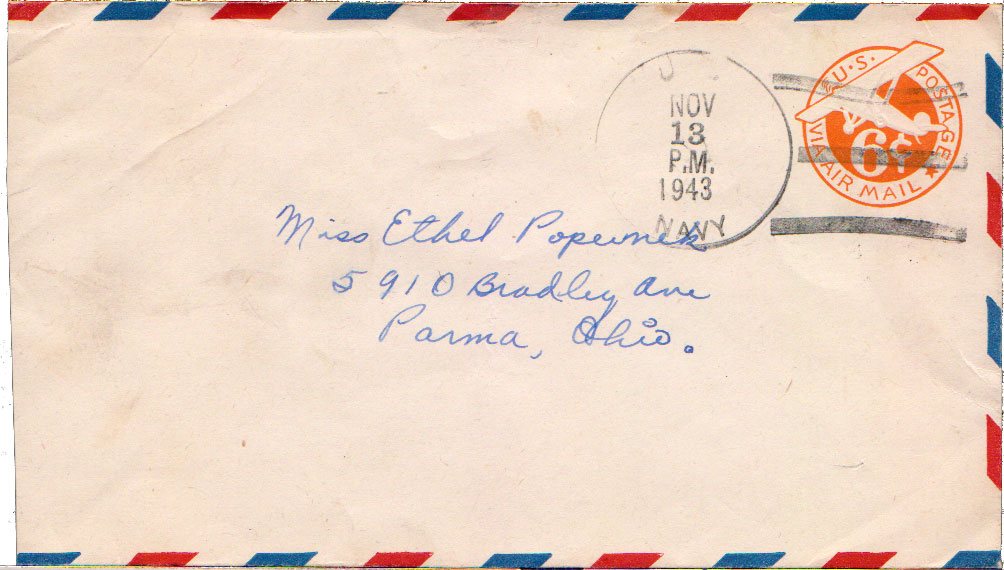 U.S. POSTAGE
6¢
VIA AIR MAIL
NOV
13
P.M.
1943
NAVY
Miss Ethel
5910 Bradley Ave
Parma, Ohio.